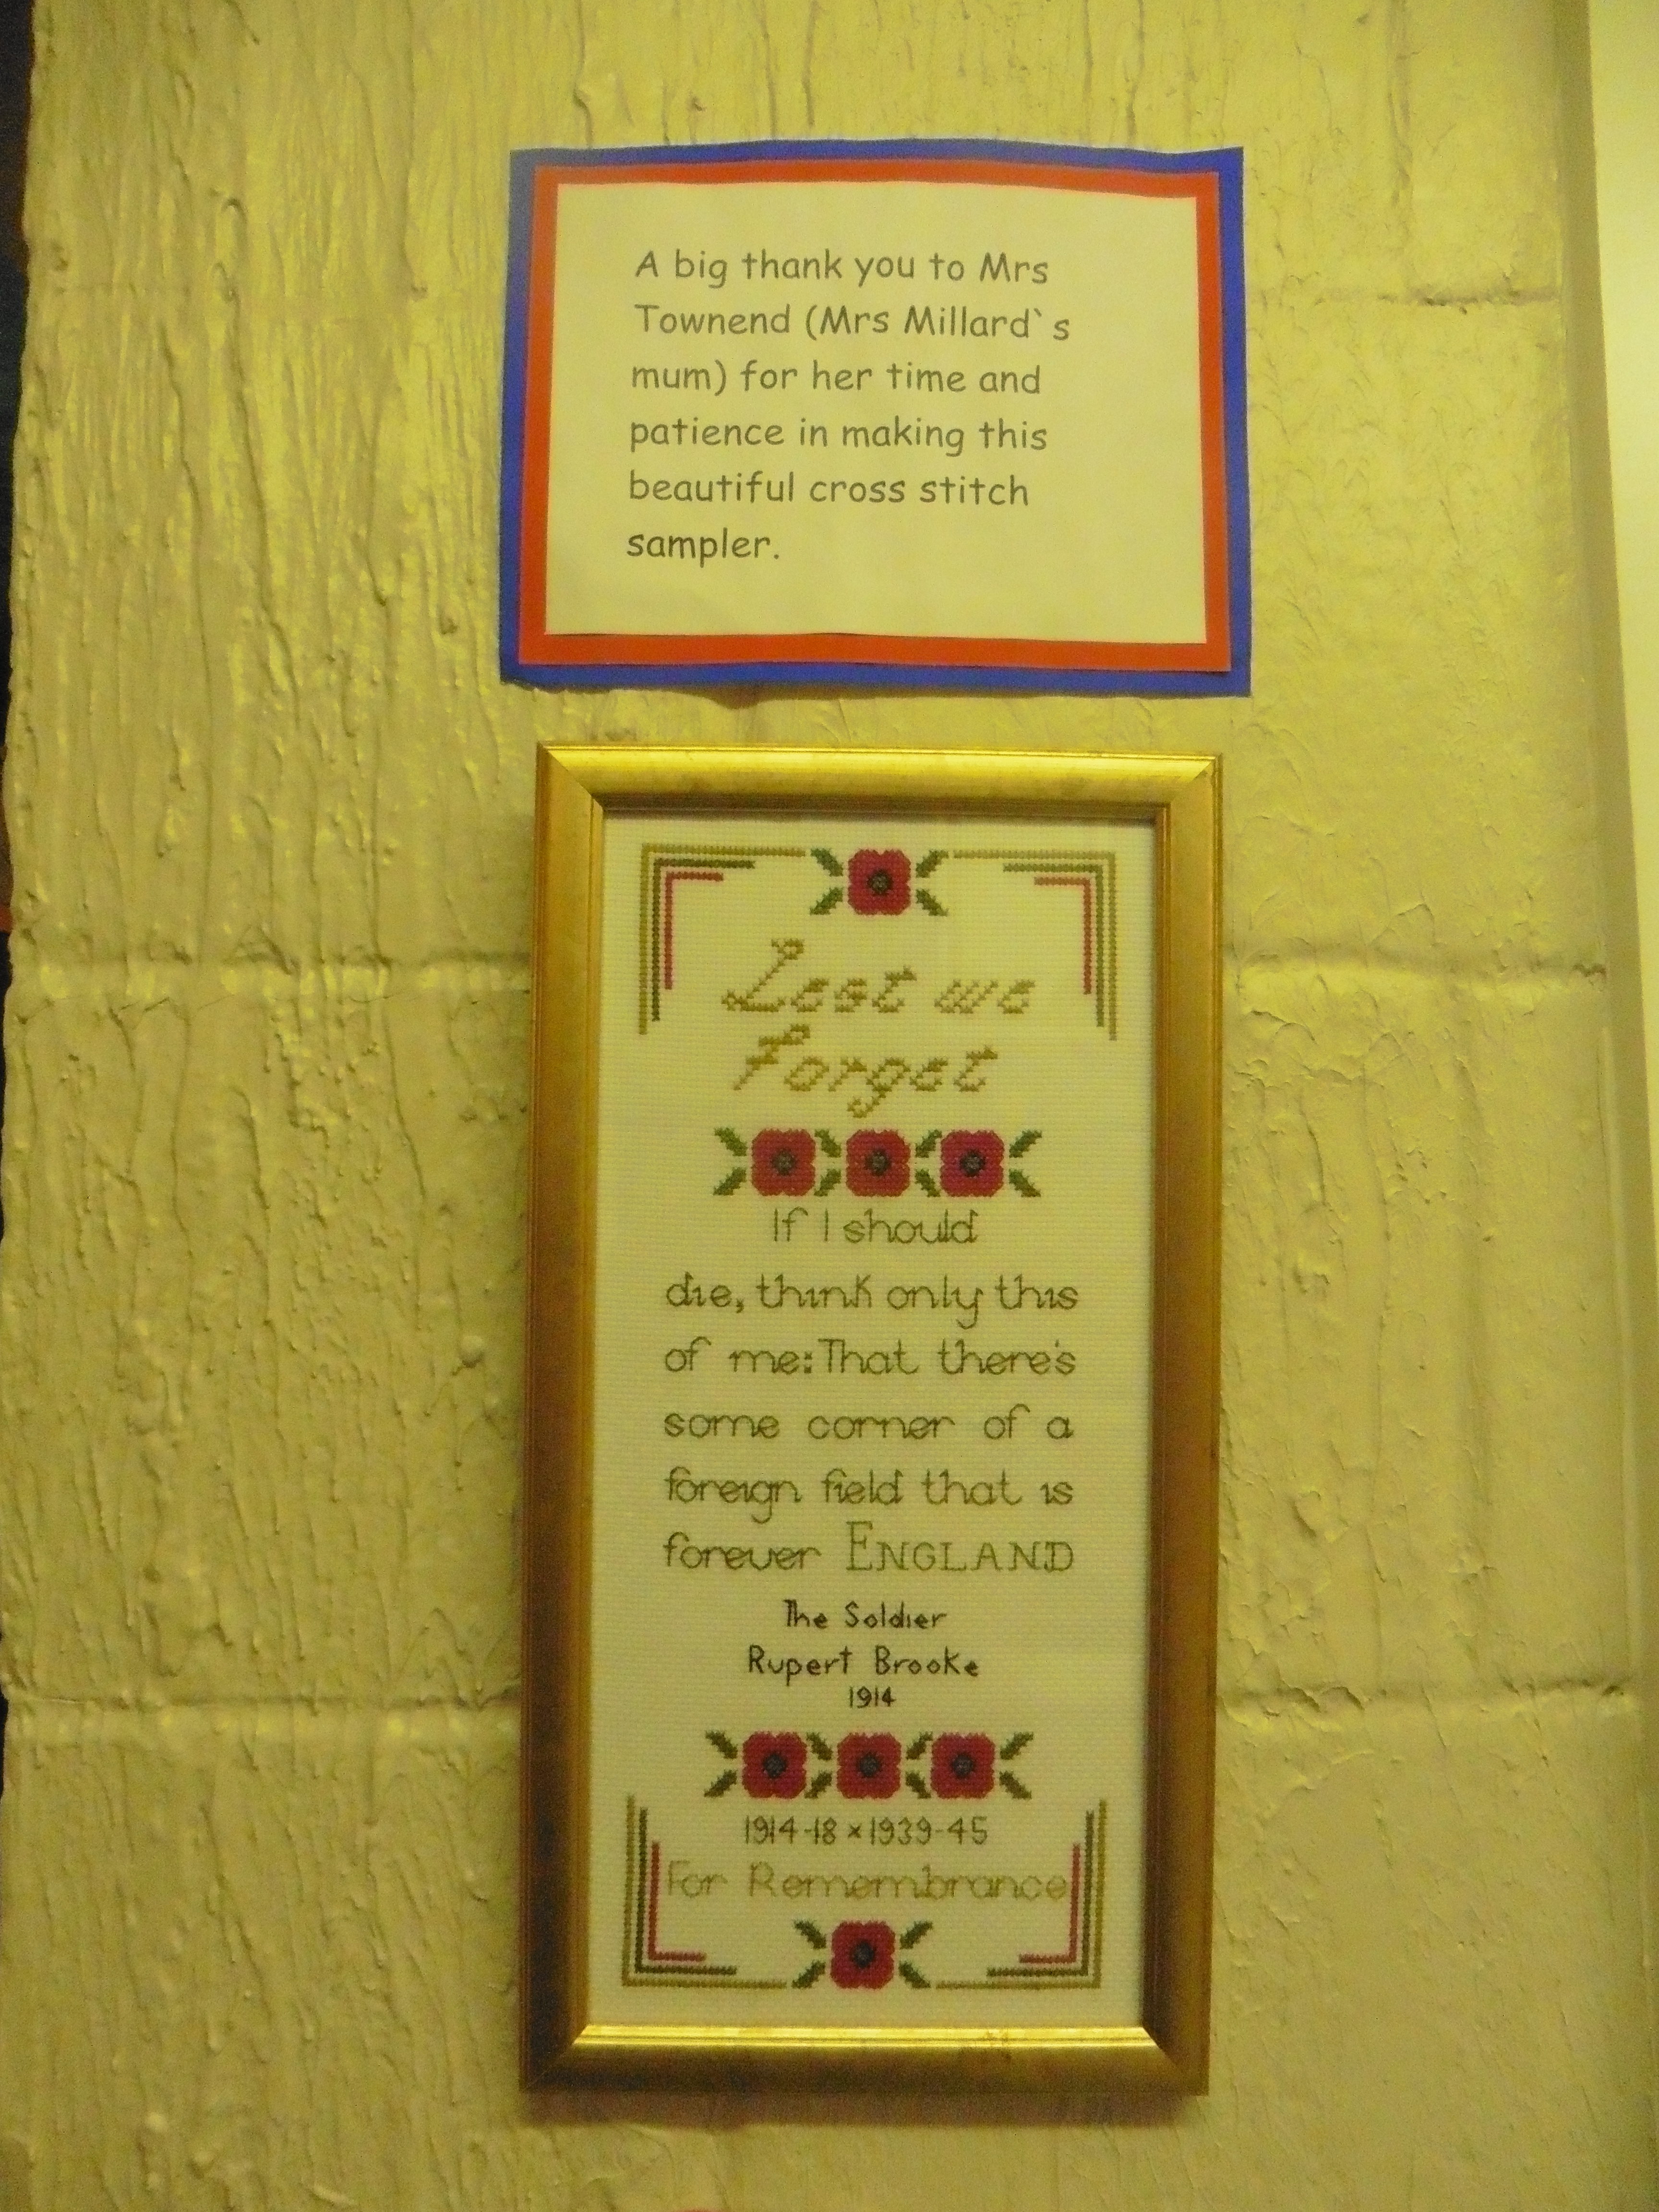 A big thank you to Mrs
Townend (Mrs Millard`s
mum) for her time and
patience in making this
beautiful cross stitch
sampler.
Lest we
Forget
If I should
die, think only this
of me: That there's
some corner of a
foreign field that is
forever ENGLAND
The Soldier
Rupert Brooke
1914
1914-18 × 1939-45
For Remembrance